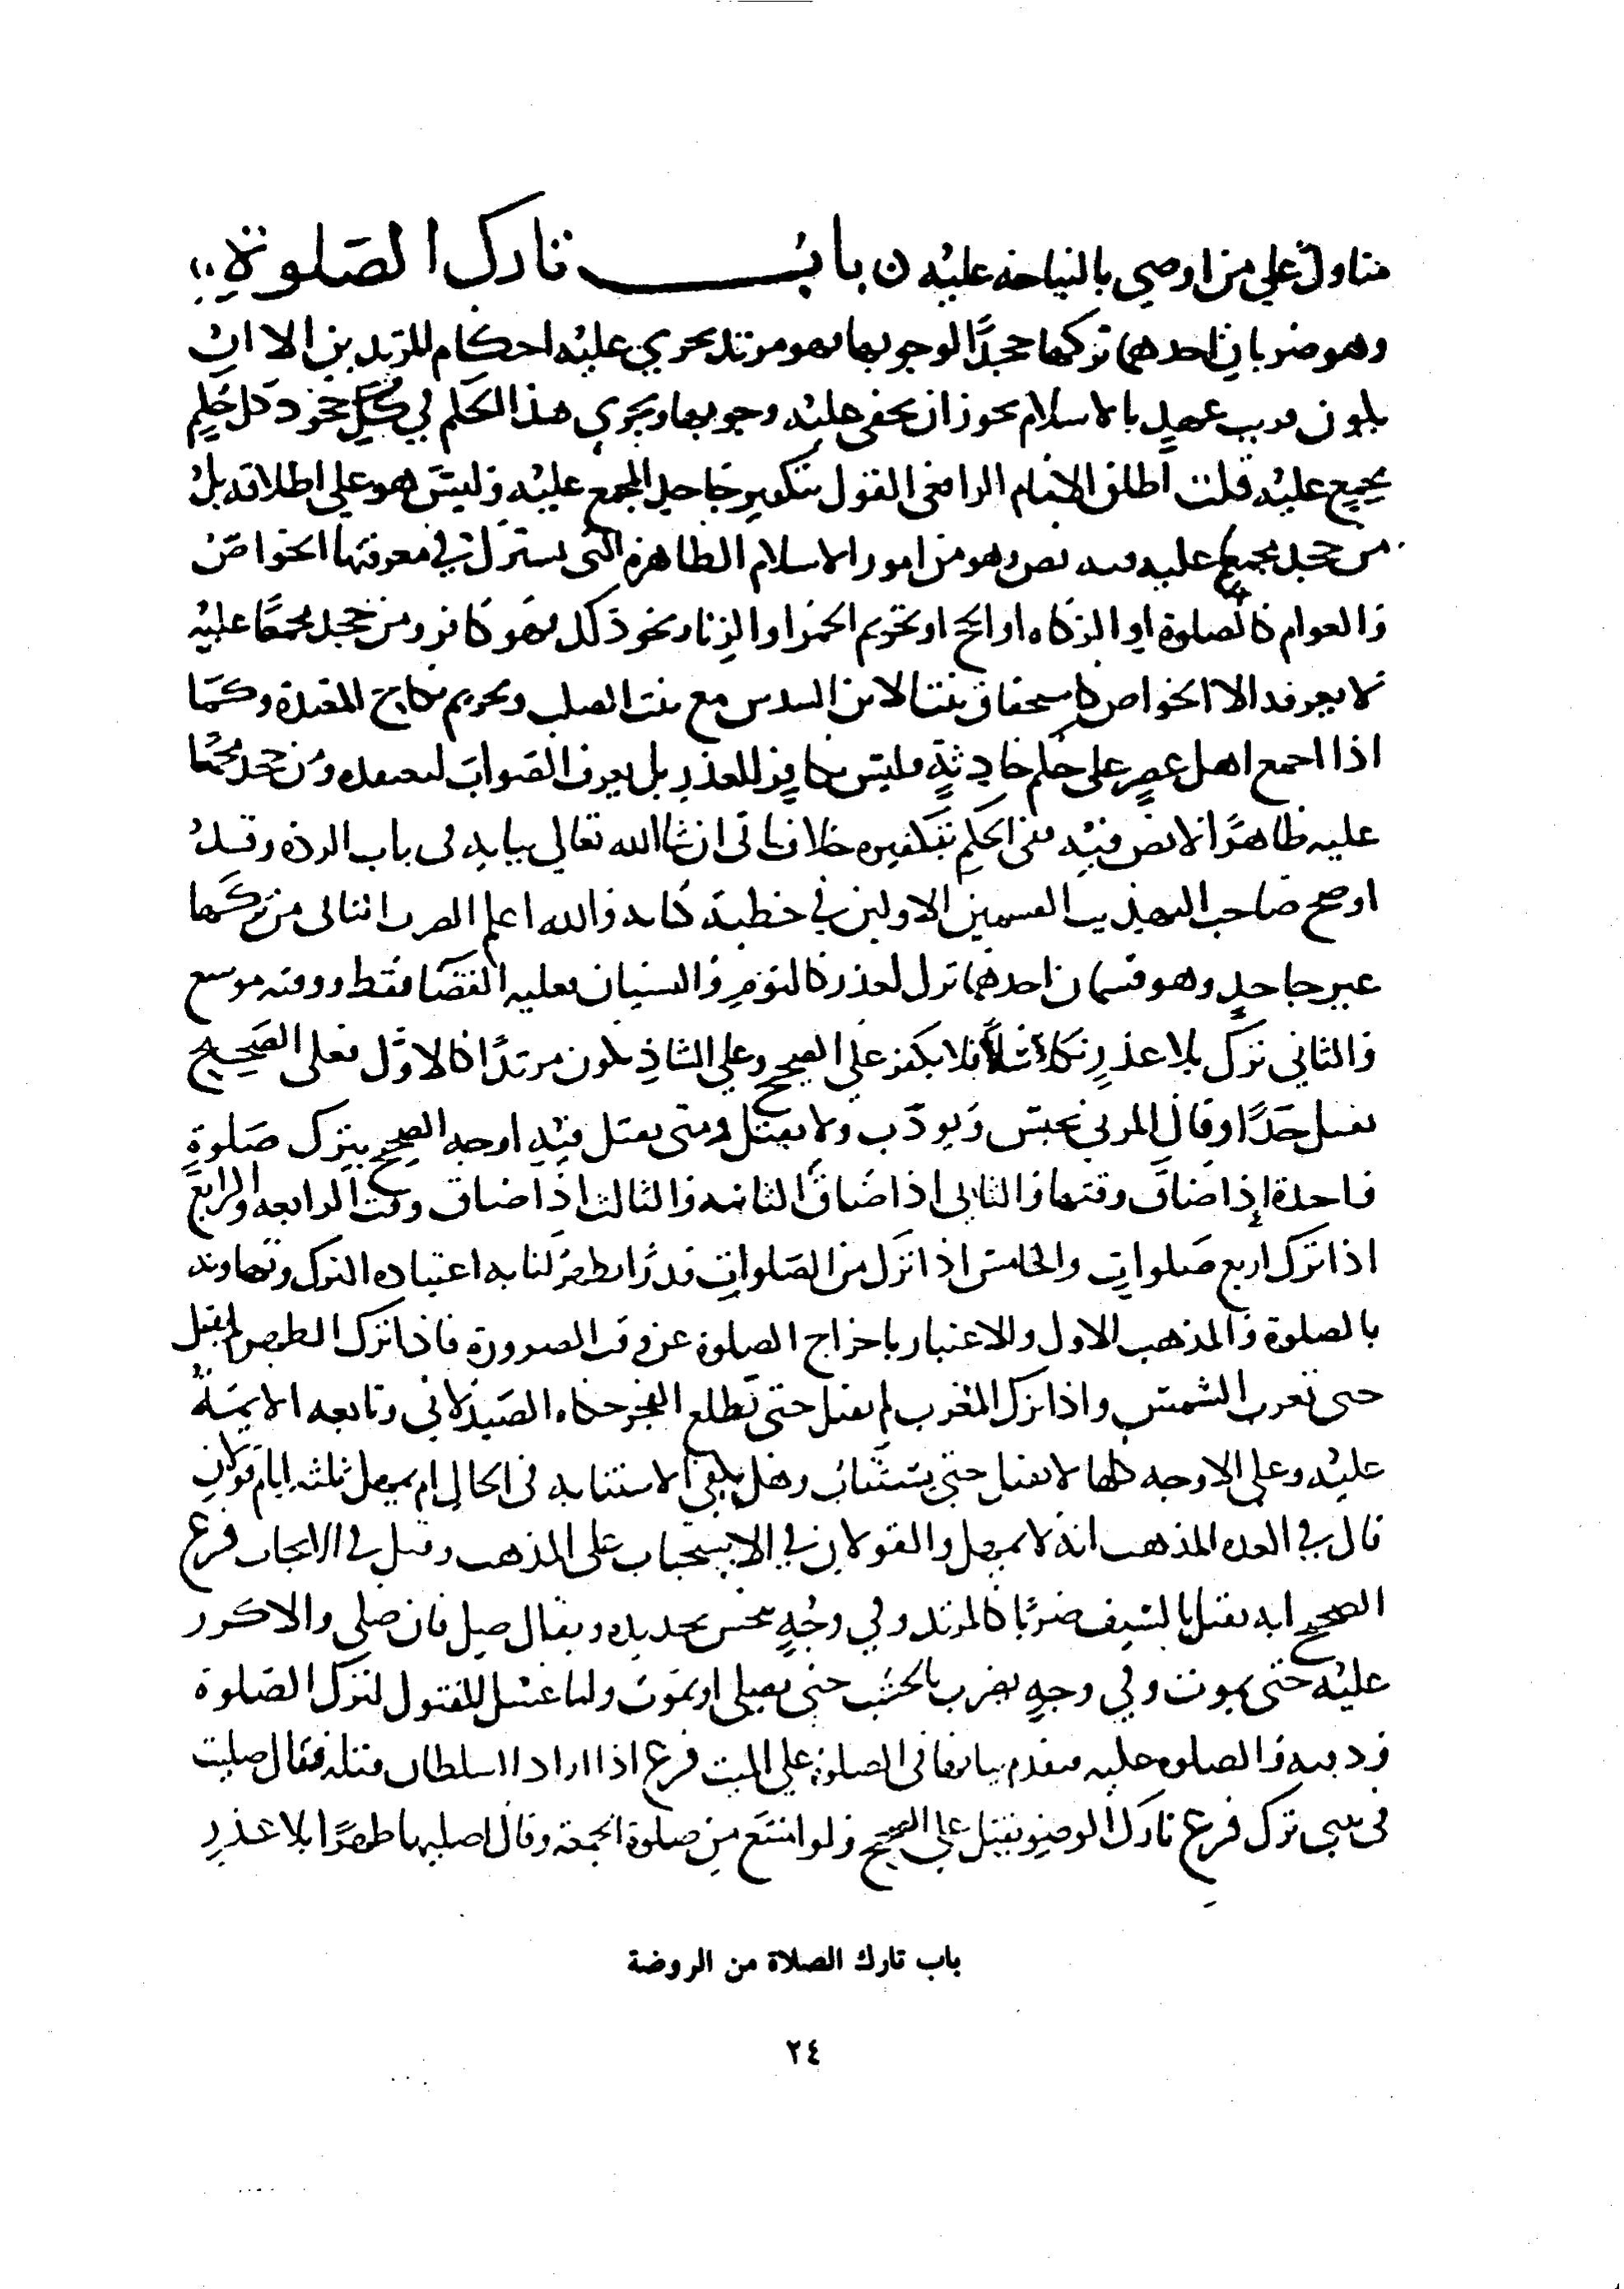 متاول على من اوصى بالنياحة عليه ن باب تارك الصلوة
وهو ضربان احدهما تركها جحدًا لوجوبها فهو مرتد يجري عليه احكام المرتدين الا ان
يكون قريب عهدٍ بالاسلام يجوز ان يخفى عليه وجوبها ويجري هذا الحكم في كل جحود كل حكمٍ
مجمع عليه قلت اطلق الامام الرافعي القول بتكفير جاحد المجمع عليه وليس هو على اطلاقه بل
من جحد مجمع عليه فيه نص وهو من امور الاسلام الظاهرة التي يشترك في معرفتها الخواص
والعوام كالصلوة او الزكاه او الحج او تحريم الخمر او الزنا ونحو ذلك فهو كافر ومن جحد مجمعًا عليه
لا يعرفه الا الخواص كاستحقاق بنت الابن السدس مع بنت الصلب وتحريم نكاح المعتدة وكما
اذا اجمع اهل عصرٍ على حكم حادثةٍ فليس بكافر للعذر بل يعرف الصواب ليعتقده ومن جحد مجمعا
عليه ظاهرًا لا نص فيه ففي الحكم بتكفيره خلاف ياتي ان شاالله تعالى بيانه في باب الردة وقد
اوضح صاحب التهذيب القسمين الاولين في خطبة كتابه والله اعلم الضرب الثاني من تركها
غير جاحدٍ وهو قسمان احدهما ترك لعذر كالنوم والنسيان فعليه القضا فقط ووقته موسع
والثاني ترك بلا عذرٍ تكاسلًا فلا يكفر على الصحيح وعلى الشاذ يكون مرتدًا كالاول فعلى الصحيح
يقتل حدًا وقال المزني يحبس ويودب ولا يقتل ومتى يقتل فيه اوجه الصحيح بترك صلوةٍ
واحدة اذا ضاق وقتها والثاني اذا ضاق الثانيه والثالث اذا ضاق وقت الرابعه والرابع
اذا ترك اربع صلوات والخامس اذا ترك من الصلوات قدرًا يظهر لنا به اعتياده الترك وتهاونه
بالصلوة والمذهب الاول والاعتبار باخراج الصلوة عن وقت الضرورة فاذا ترك الظهر لم يقتل
حتى تغرب الشمس واذا ترك المغرب لم يقتل حتى يطلع الفجر حكاه الصيدلاني وتابعه الايمة
عليه وعلى الاوجه كلها لا يقتل حتى يستتاب وهل يكفي الاستتابه في الحال ام يمهل ثلثه ايام قولان
قال في العده المذهب انه لا يمهل والقولان في الاستحباب على المذهب وقيل في الايجاب فرع
الصحيح انه يقتل بالسيف ضربًا كالمرتد وفي وجهٍ ينخس بحديده ويقال صل فان صلى والا كرر
عليه حتى يموت وفي وجهٍ يضرب بالخشب حتى يصلي او يموت واما غسل المقتول لترك الصلوة
ودفنه والصلوه عليه فتقدم بيانها في الصلوة على الميت فرع اذا اراد السلطان قتله فقال صليت
في بيتي ترك فرع تارك الوضو يقتل على الصحيح ولو امتنع من صلوة الجمعة وقال اصليها ظهرًا بلا عذرٍ
باب تارك الصلاة من الروضة
٢٤